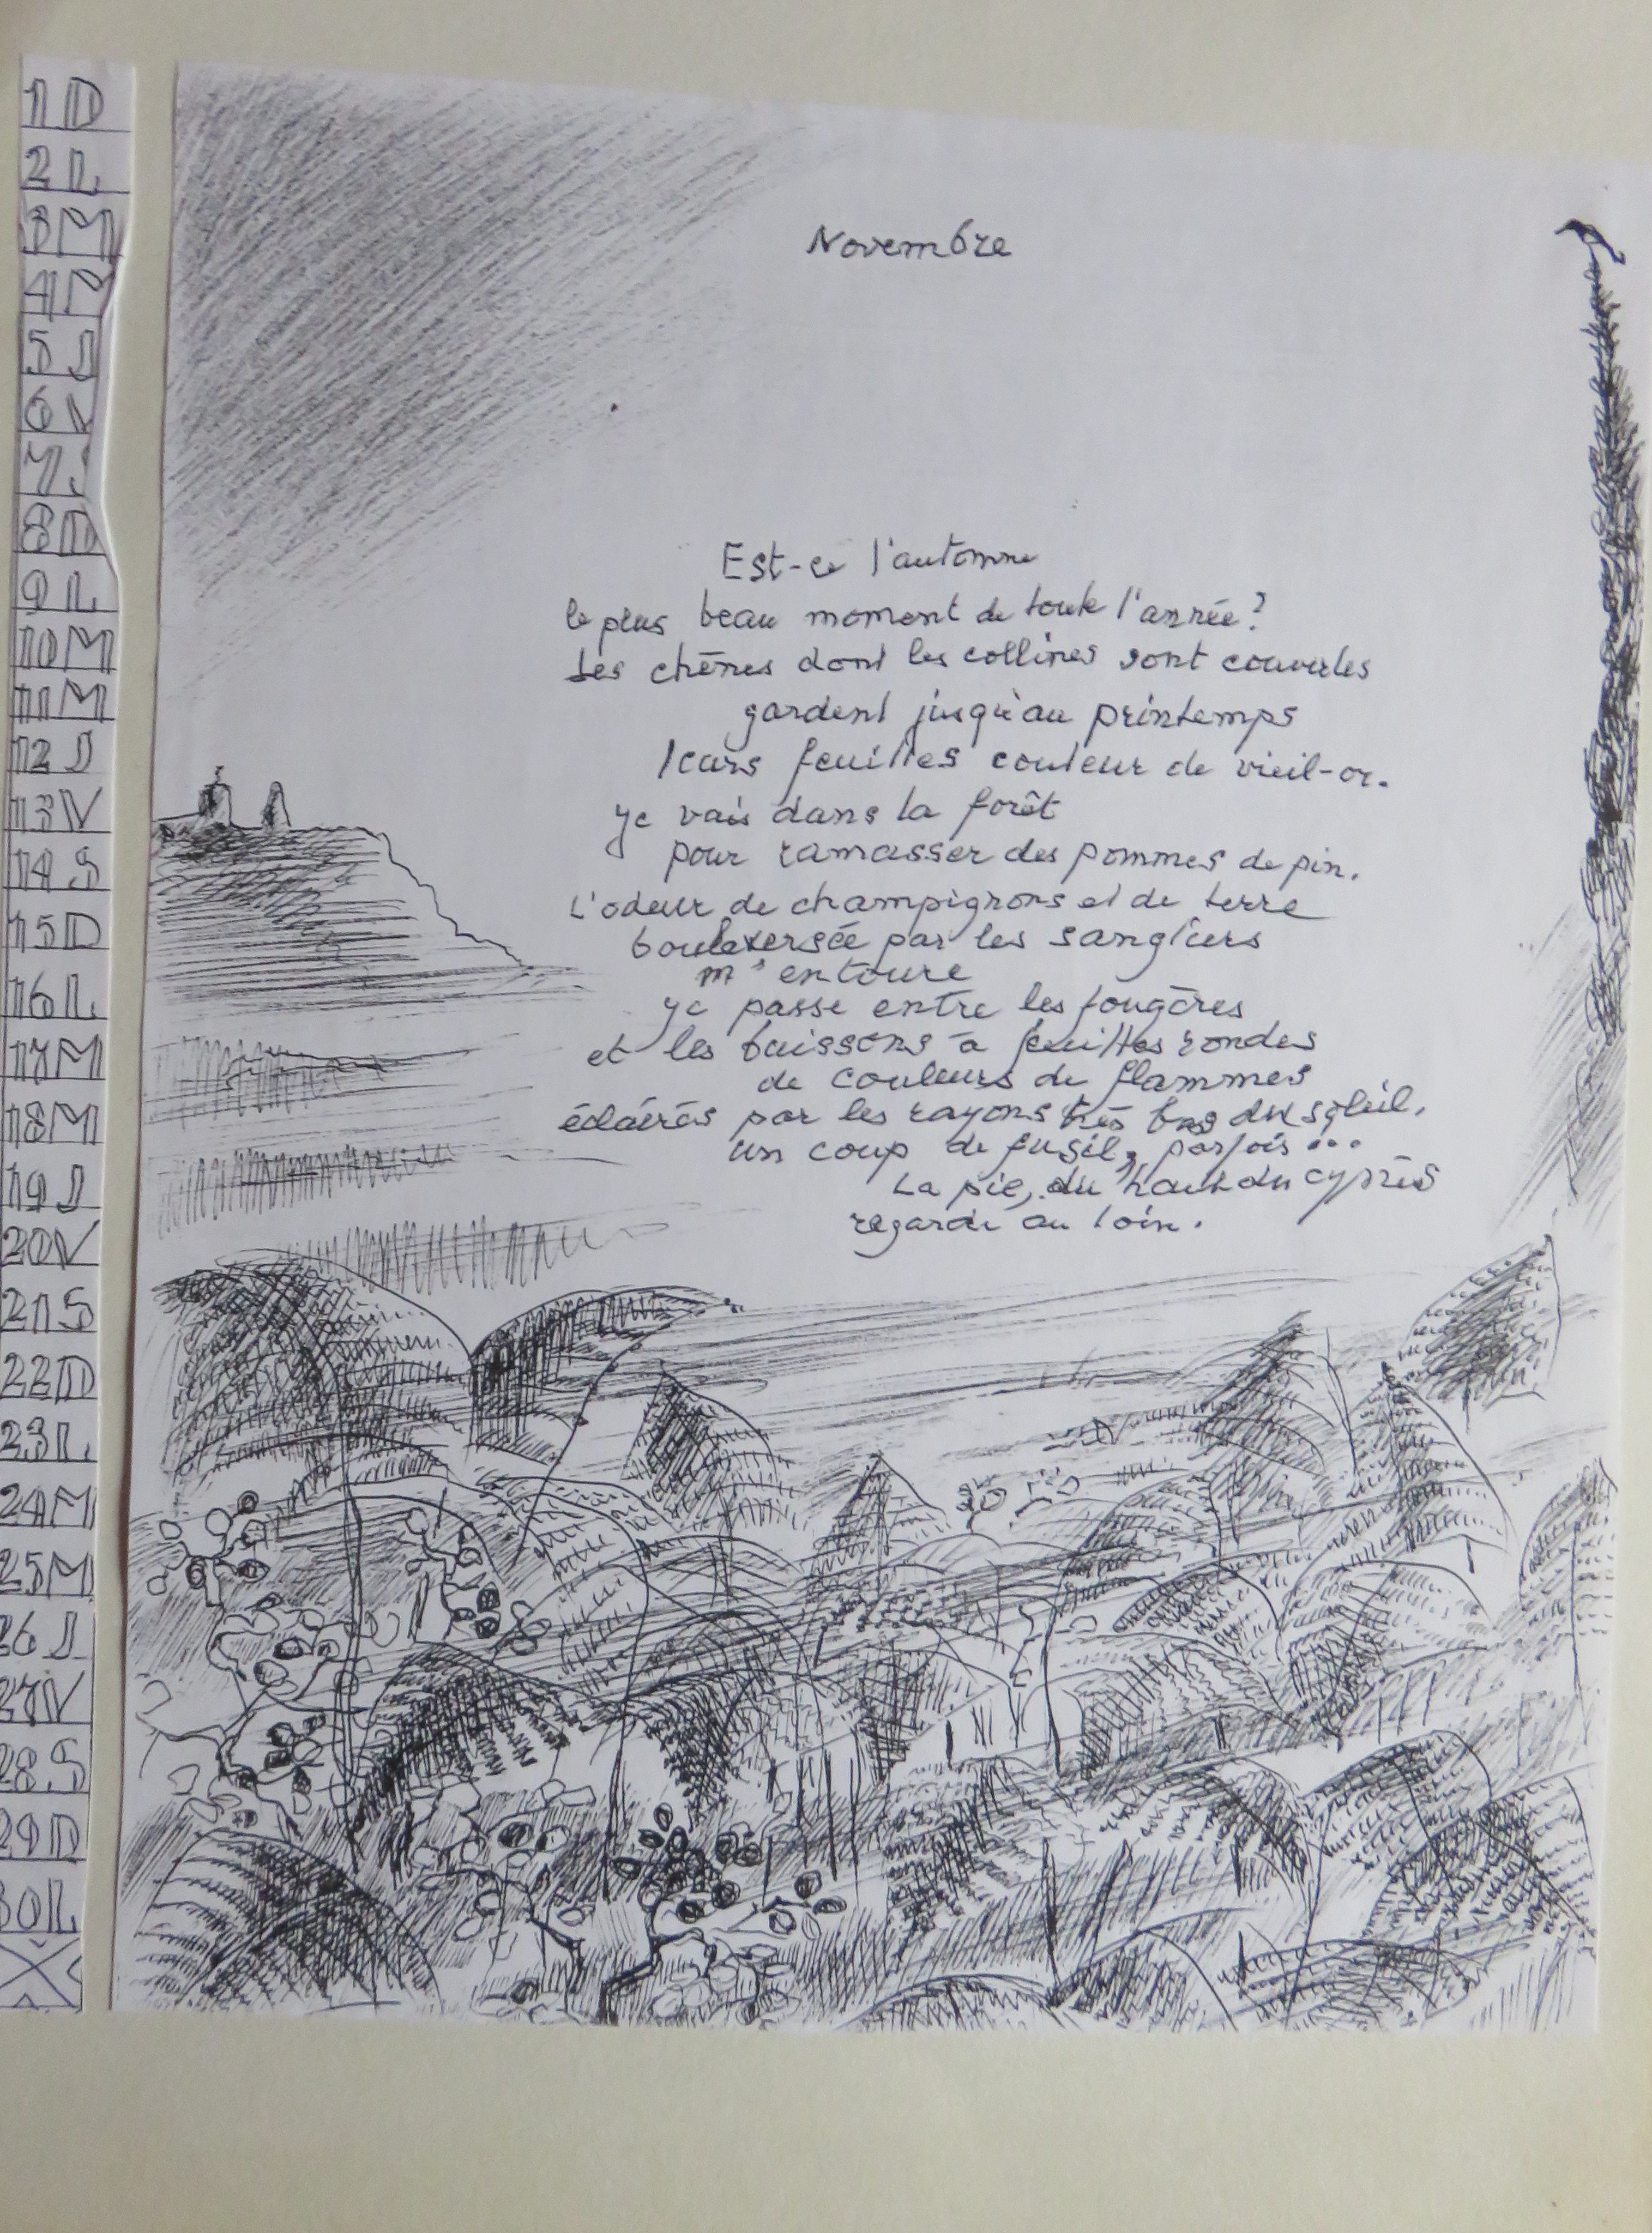 1 D
2 L
3 M
4 M
5 J
6 V
7 S
8 D
9 L
10 M
11 M
12 J
13 V
14 S
15 D
16 L
17 M
18 M
19 J
20 V
21 S
22 D
23 L
24 M
25 M
26 J
27 V
28 S
29 D
30 L
Novembre
Est-ce l'automne
le plus beau moment de toute l'année?
Les chênes dont les collines sont couvertes
gardent jusqu'au printemps
leurs feuilles couleur de vieil-or.
Je vais dans la forêt
pour ramasser des pommes de pin.
L'odeur de champignons et de terre
bouleversée par les sangliers
m'entoure
Je passe entre les fougères
et les buissons à feuilles rondes
de couleurs de flammes
éclairés par les rayons très bas du soleil.
un coup de fusil, parfois...
La pie, du haut du cyprès
regarde au loin.